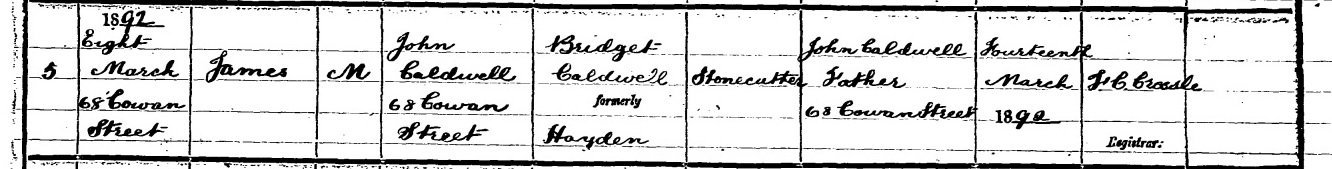 5
1892
Eight
March
68 Cowan
Street
James
M
John
Caldwell
68 Cowan
Street
Bridget
Caldwell
formerly
Hayden
Stonecutter
John Caldwell
Father
68 Cowan Street
Fourteenth
March
1892
F C Crossle
Registrar.